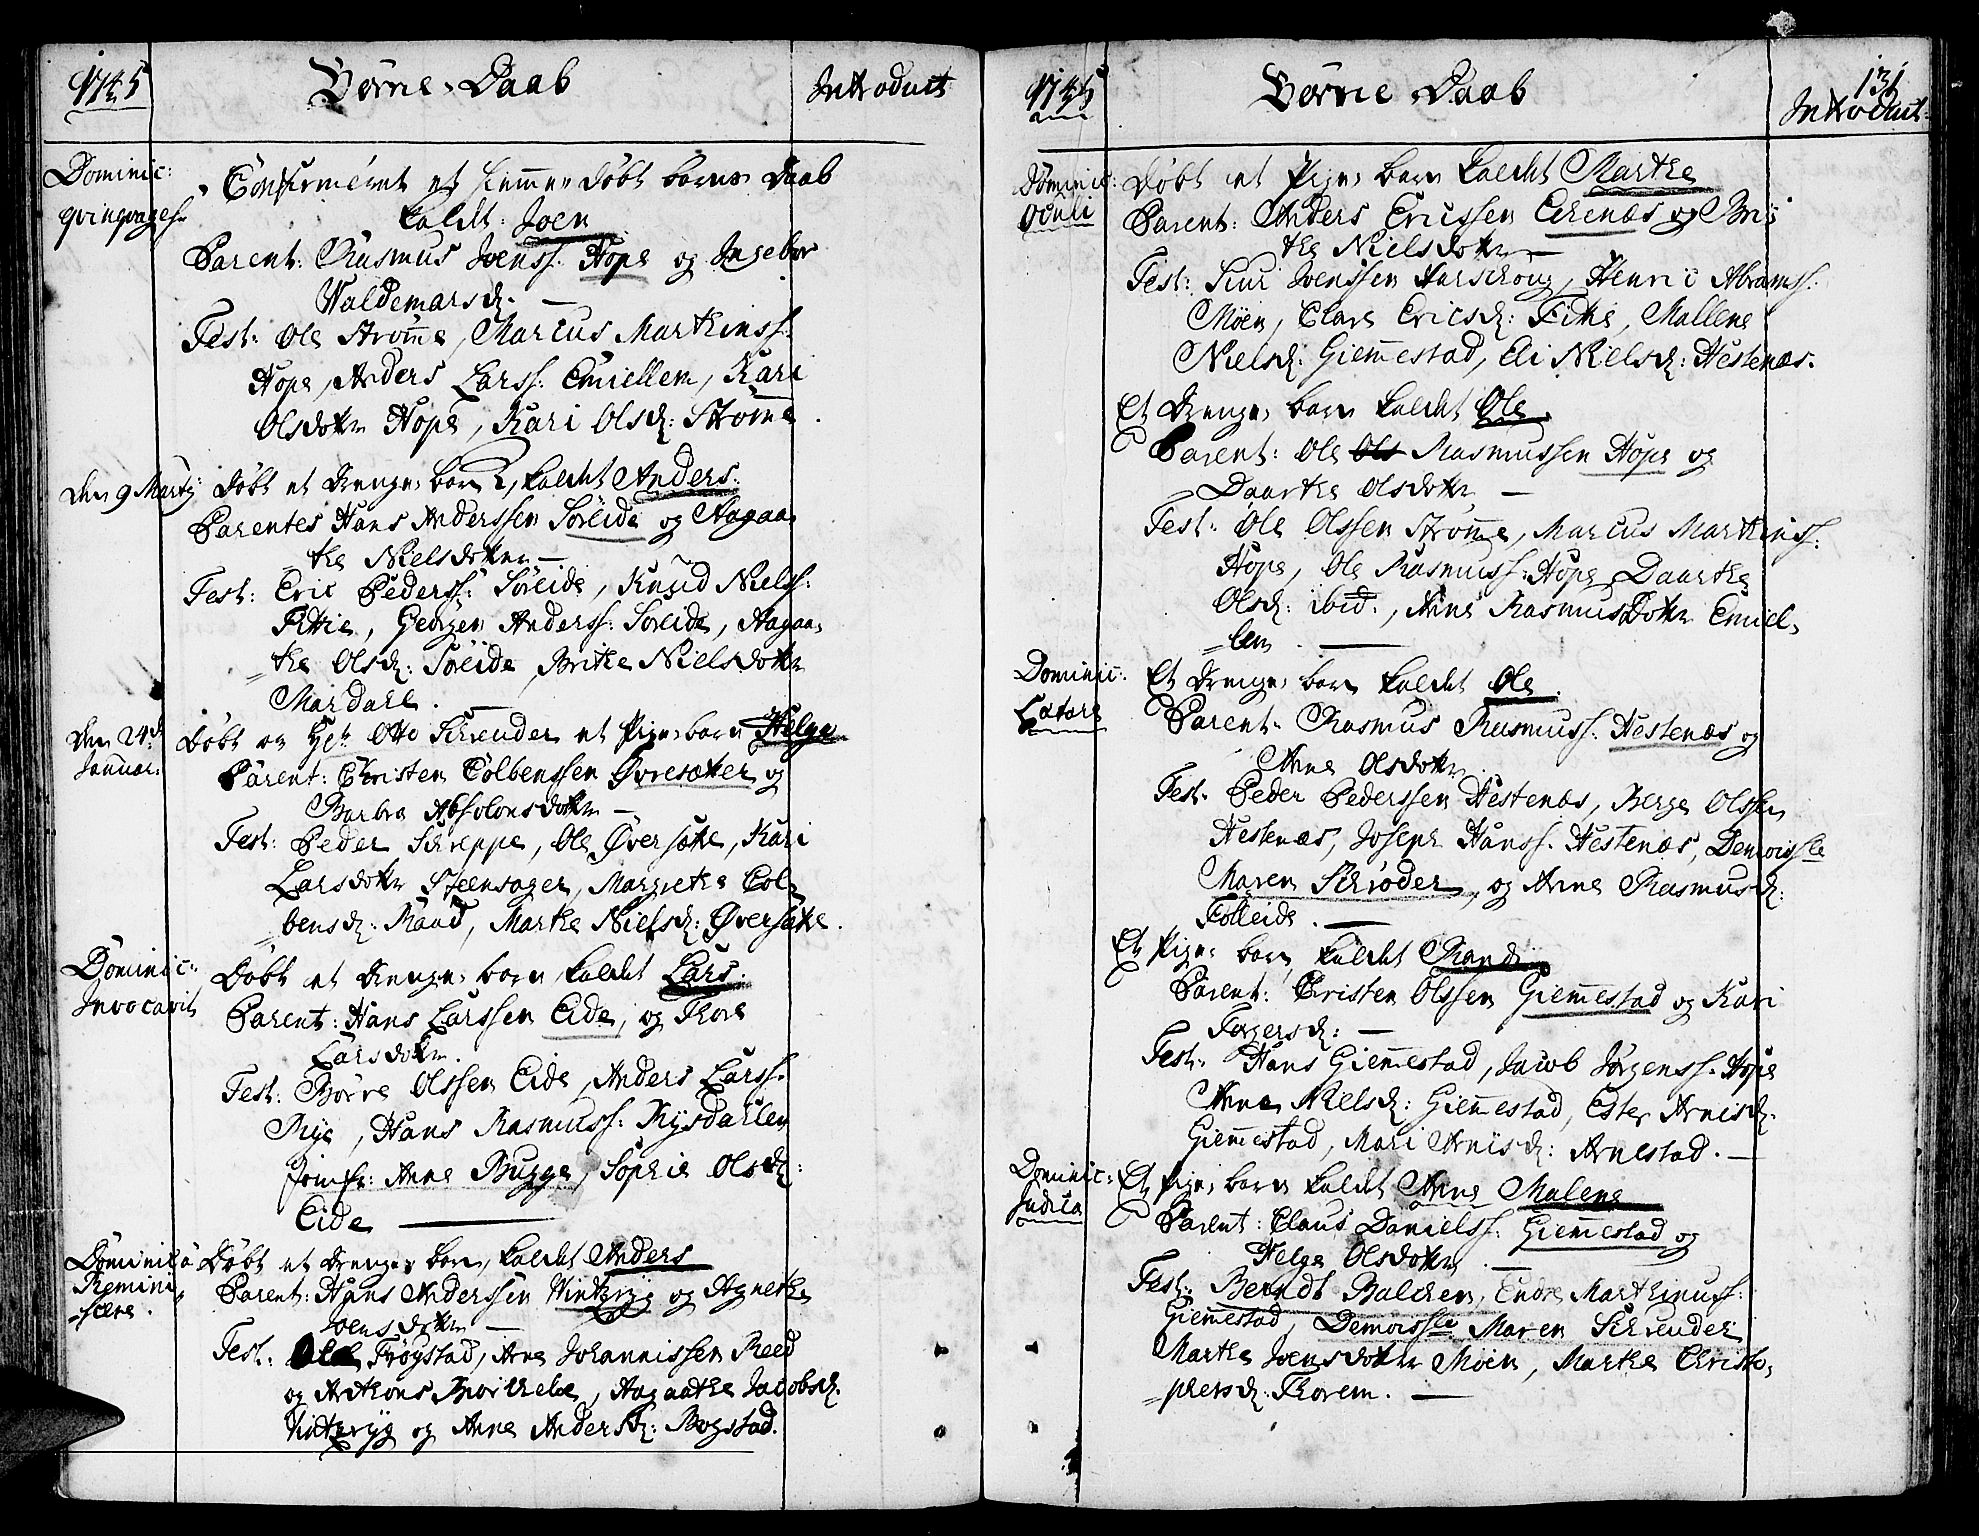 1745
Børne-Daab
Introduct
Dominic:
qvinqvages:
Confirmeret et hiemme døbt barns Daab
kaldt: Joen
Parent: Rasmus Joenss: Hope og Ingebor
Waldemarsd. —
Test: Ole Strømme, Marcus Marthinss:
Hope, Anders Larss: Emiellem, Kari
Olsdotter Hope, Kari Olsd: Strømme.
den 9 Martij
Døbt et drenge-barn, kaldet Anders.
Parentes Hans Anderssen Sørëide og Aagaa-
the Nielsdotter —
Test: Eric Pederss: Sörëide, Knud Nielss:
Fithie, Georgen Anderss: Sørëide, Aagaa-
the Olsd: Sørëide, Brithe Nielsdotter
Mardahl. —
den 24d
Januar:
Døbt og Hr. Otto Schreuder et Pige-barn Helge
Parent: Christen Colbenssen Øvresæther og
Barbra Absolonsdotter —
Test: Peder Schreppe, Ole Øversæthe, Kari
Larsdotter Steensager, Margrethe Col-
bensd: Raad, Marthe Nielsd: Øversæthe.
Dominic:
Invocavit
Døbt et Drenge-barn, kaldet Lars.
Parent: Hans Larssen Eide, og Thore
Larsdotter.
Test: Børre Olssen Eide, Anders Larss.
Rye, Hans Rasmuss: Rysdahlen
Jomfr: Anne Bugge, Sophie Olsd:
Eide —
Dominica
Remini-
scere.
Døbt et drenge-barn, kaldet Anders
Parent: Hans Anderssen Vinteryg og Agnethe
Joensdotter —
Test: Ole Frøystad, Arne Johannissen Reed
og Anthons, Aagaathe Jacobsd.
Vinteryg og Anne Andersd: Bogstad.
1745
Børne-Daab
131
Introduct
Dominic:
Oculi
Døbt et Pige-barn kaldet Marthe
Parent: Anders Ericssen Eikenæs og Bri-
the Nielsdotter —
Test: Siur Joenssen Aarschoug, Henric Abramss:
Möen, Clare Ericsd: Fithie, Mallene
Nielsd: Giemmestad, Eli Nielsd: Hestenæs.
Et Drenge-barn kaldet Ole.
Parent: Ole Ols Rasmussen Hope og
Daarthe Olsdotter —
Test: Ole Olssen Strømme, Marcus Marthinss:
Hope, Ole Rasmuss: Hope, Daarthe
Olsd: ibid:, Anne Rasmusdotter Emiel-
lem. —
Dominic:
Lætare
Et Drenge-barn kaldet Ole.
Parent: Rasmus Rasmuss: Hestenæs og
Anne Olsdotter.
Test: Peder Pederssen Hestenæs, Berge Olssen
Hestenæs, Joseph Hanss. Hestenæs, Demoisslle
Maren Schrøder, og Anne Rasmusd:
Folleide. —
Et Pige-barn kaldet Randi
Parent: Christen Olssen Giemmestad og Kari
Torgersd: —
Test: Hans Giemmestad, Jacob Jørgenss. Hope
Anne Nielsd: Giemmestad, Ester Arnisd.
Giemmestad, Mari Arnisd: Arnestad. —
Dominic:
Judica
Et Pige-barn kaldet Anne Malene
Parent: Claus Danielss: Giemmestad og
Helge Olsdotter. —
Test: Berndt Balchen, Endre Marthinuss:
Giemmestad, Demoisslle Maren Schreuder
Marthe Joensdotter Möen, Marthe Christo-
phersd: Thorem. —